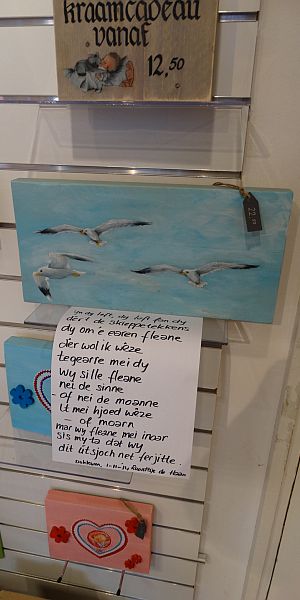 kraamcadeau
vanaf
12,50
22,50
yn dy loft, dy loft fan dy
der't de skieppewolkens
dy om'e earen fleane
der wol ik wêze
tegearre mei dy
wy sille fleane
nei de sinne
- of nei de moanne
It mei hjoed wêze
- of moarn
mar wy fleane mei inoar
Sis my ta dat wy
dit útsjoch net ferjitte.
de Haan